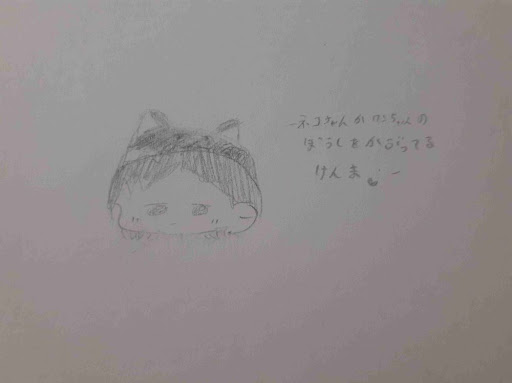 ネコちゃんかワンちゃんの
ぼうしをかぶってる
けんま